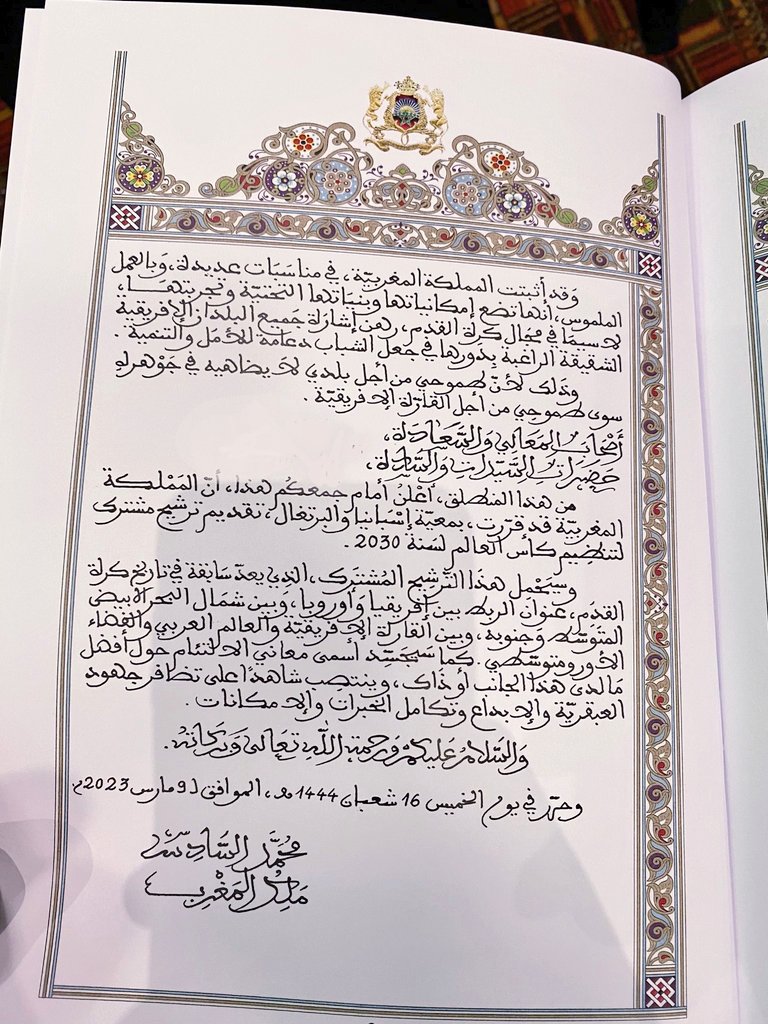 وَقد أثبتت المملكة المغربيّة، في مناسَبَات عديدة، وَبالعمل
الملموس، أنها تضع إمكانياتها وبنيَاتها التحتيّة وتجربتهَا،
لاسيمَا في مجَال كرة القدم، رهن إشارة جَميع البلدان الإفريقية
الشقيقة الراغبة بِدورها في جعل الشباب دعامة للأمَل والتنمية.
وذَلك لأنّ طموحي من أجل بلدي لاَ يضاهيه في جَوْهره
سوى طموحِي من أجل القارّة الإفريقيّة.
أصْحَابَ المَعَالي وَالسَّعَادَة،
حَضَرَات السَّيّدَات وَالسَّادَة،
من هذا المنطلق، أعْلنُ أمام جمعكُم هذا، أنّ المَمْلكة
المغربيّة قد قرّرت، بمعيّة إسْبانيا والبرتغال، تقديم ترشيح مشترك
لتنظيم كأس العالم لسَنة 2030.
وسيَحْمل هذَا التّرشيح المُشترَك، الذِي يعدّ سَابقة في تاريخ كرة
القدَم، عنوان الربط بين إفريقيا وَأوروبا، وبين شمال البحر الأبيض
المتوَسّط وَجنوبه، وبين القارة الإفريقيّة والعالم العربي والفضاء
الأورومتوسّطي. كما سَيجَسّد أسمى معاني الالتئام حول أفضل
مَا لدى هذا الجانب أو ذَاك، وينتصِب شَاهدًا على تظافر جهود
العبقريّة والإبداع وتكامل الخبرات والإمكانات.
وَالسَّلَامُ عَليكمْ وَرحمة اللّه تعَالى وَبَركاتهُ.
وحرّر في يوم الخميس 16 شعبان 1444هـ، الموافق لـ 9 مارس 2023م
مُحمَّد السَّادِسُ
مَلِكُ المَغْربِ